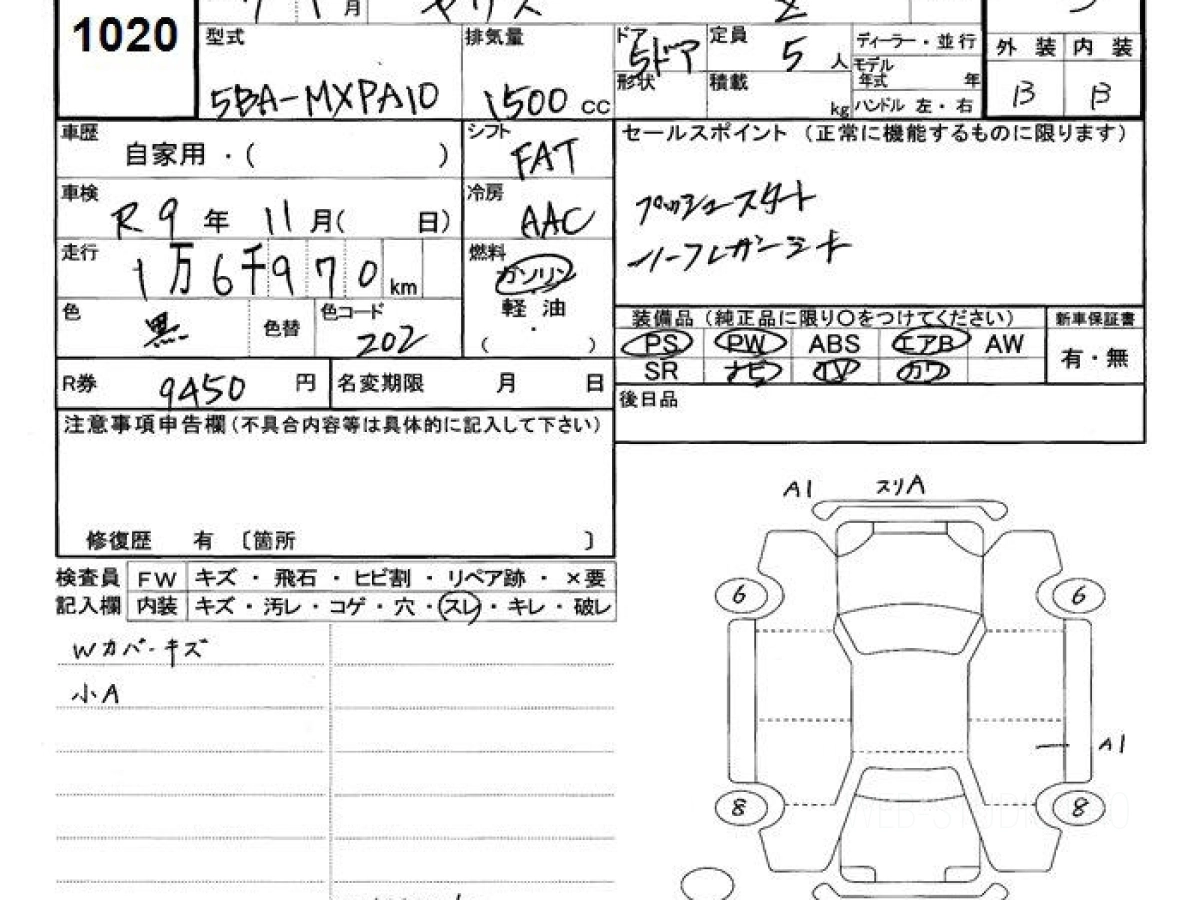 1020
月 ヤリス Z
型式 5BA-MXPA10
排気量 1500 cc
ドア 5ドア
形状
定員 5 人
積載 kg
ディーラー・並行
モデル年式 年
ハンドル 左・右
外装 内装
B B
車歴 自家用・( )
シフト FAT
車検 R 9 年 11 月( 日)
冷房 AAC
走行 1万6千970 km
燃料 ガソリン
軽油
( ・ )
色 黒
色替
色コード 202
R券 9450 円
名変期限 月 日
セールスポイント (正常に機能するものに限ります)
プッシュスタート
ハーフレザーシート
装備品(純正品に限り○をつけてください)
PS PW ABS エアB AW
SR ナビ TV カワ
新車保証書
有・無
後日品
注意事項申告欄(不具合内容等は具体的に記入して下さい)
修復歴 有 〔箇所 〕
検査員 FW キズ・飛石・ヒビ割・リペア跡・×要
記入欄 内装 キズ・汚レ・コゲ・穴・スレ・キレ・破レ
Wカバーキズ
小A
A1 スリA
6 6
A1
8 8